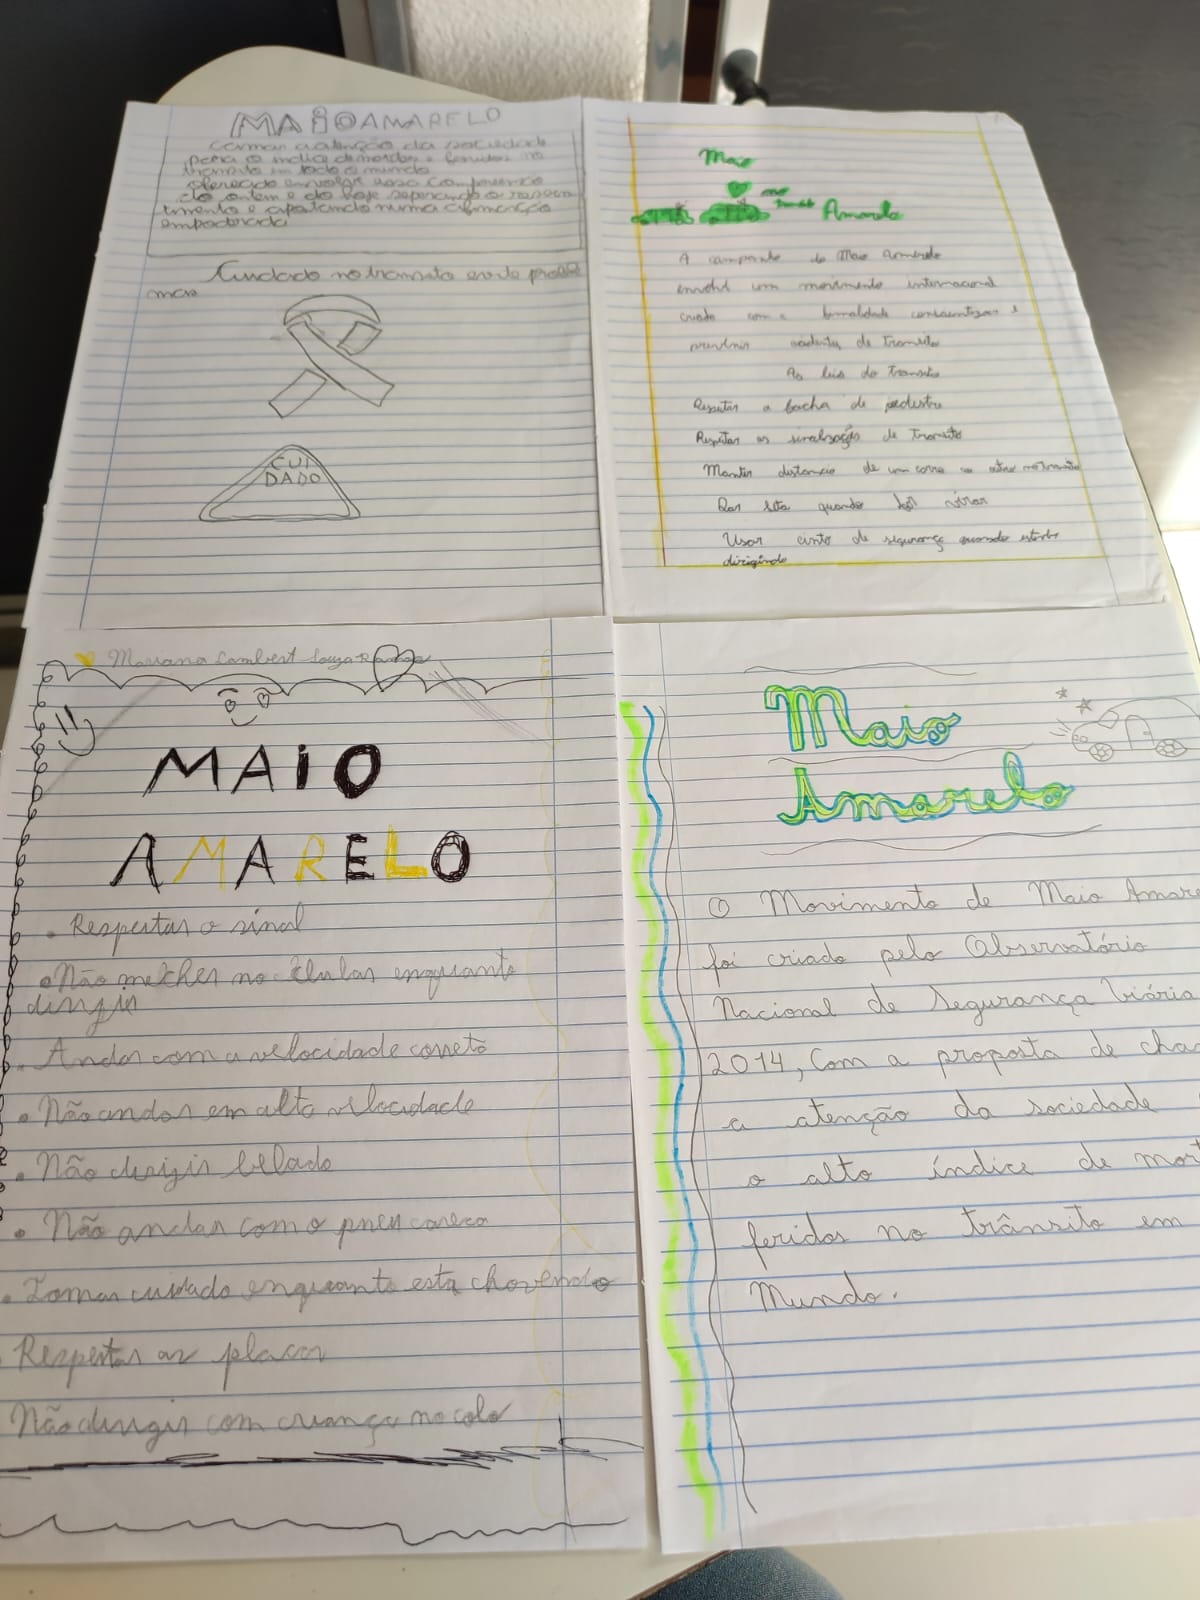 MAIO AMARELO
atenção da sociedade
para o indice de mortes e feridos no
transito em todo o mundo
do ontem e do hoje
empoderada
Cuidado no transito evite proble
mas
CUI
DADO
Maio
no
transito
Amarelo
A campanha do Maio Amarelo
envolve um movimento internacional
criado com a finalidade conscientizar e
previnir acidentes de transito
As leis do transito
Respeitar a facha de pedestre
Respeitar as sinalização de transito
Manter distancia de um carro ao outro no transito
Dar seta quando for virar
Usar cinto de segurança quando estiver
dirigindo
Mariana Lambert Souza Ramos
MAIO
AMARELO
• Respeitar o sinal
• Não mecher no celular enquanto
dirigir
• Andar com a velocidade correta
• Não andar em alta velocidade
• Não dirigir bebado
• Não andar com o pneu careca
• Tomar cuidado enquanto esta chovendo
Respeitar as placas
Não dirigir com criança no colo
Maio
Amarelo
O Movimento de Maio Amare
foi criado pelo Observatório
Nacional de Segurança Viária
2014, Com a proposta de cha
a atenção da sociedade
o alto índice de mort
feridos no trânsito em
Mundo.